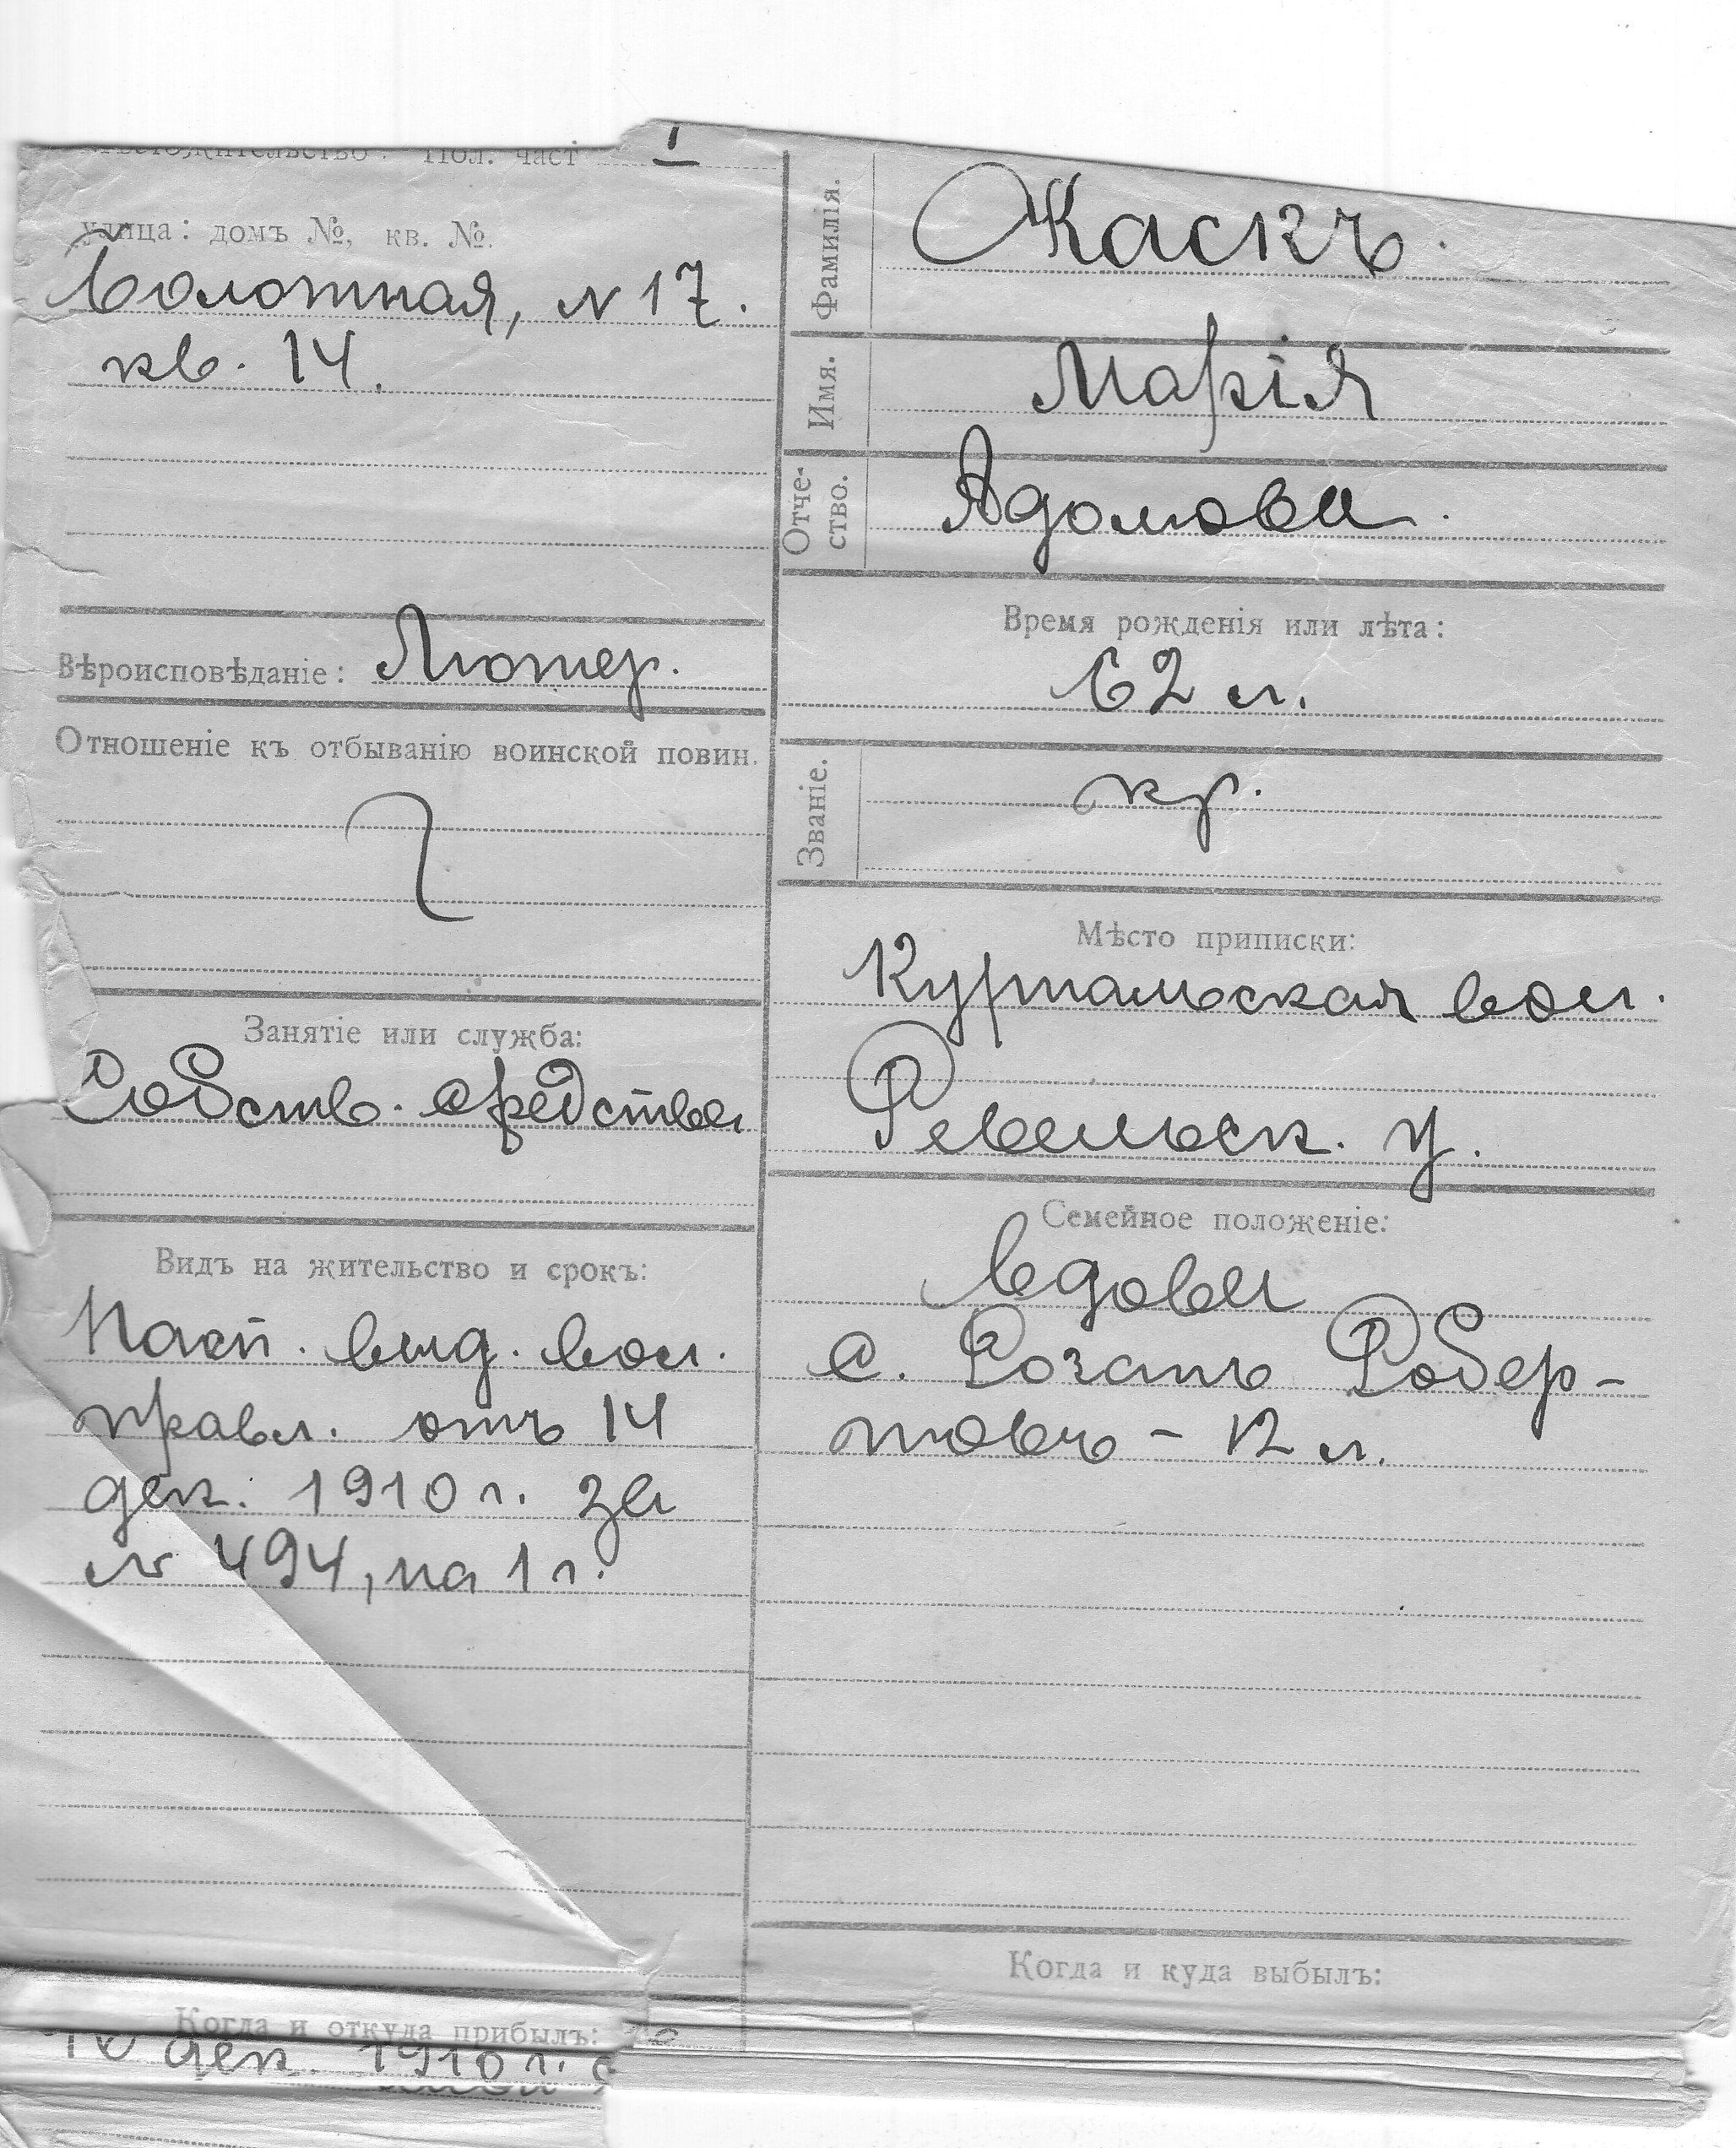 Пол. част I
улица: домъ №, кв. №.
Болотная, N 17.
кв. 14.
Вѣроисповѣданіе: Лютер.
Отношеніе къ отбыванію воинской повин.
Занятіе или служба:
Собств. средства
Видъ на жительство и срокъ:
Пасп. выд. вол.
правл. отъ 14
дек. 1910 г. за
N 494, на 1 г.
Когда и откуда прибылъ:
дек. 1910 г.
Фамилія.
Каскъ.
Имя.
Марія
Отче-
ство.
Адольова.
Время рожденія или лѣта:
62 л.
Званіе.
кр.
Мѣсто приписки:
Куртальская вол.
Ревельск. у.
Семейное положеніе:
вдова
с. Робер-
товъ - 12 л.
Когда и куда выбылъ: